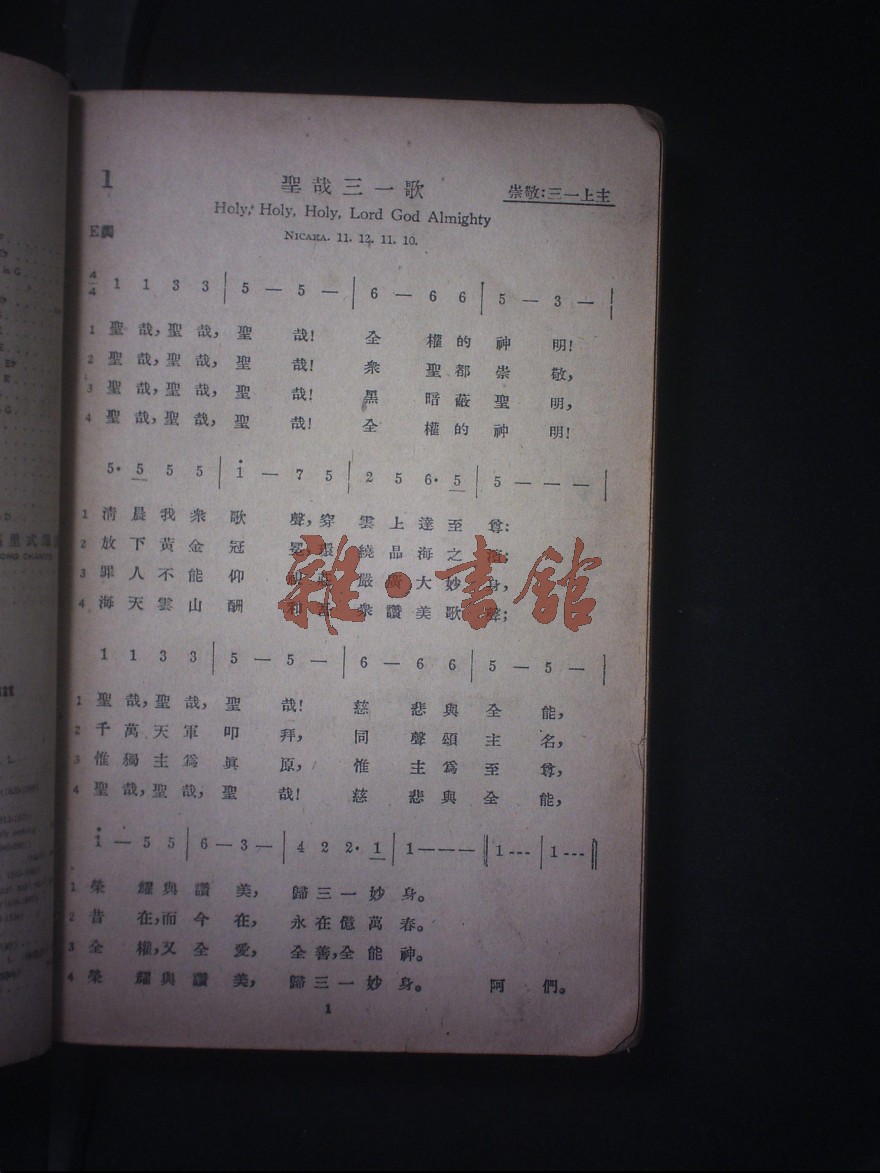 1
聖哉三一歌
崇敬:三一上主
Holy, Holy, Holy, Lord God Almighty
NICAEA. 11. 12. 11. 10.
E調
4/4 1 1 3 3 | 5 — 5 — | 6 — 6 6 | 5 — 3 — |
1 聖哉,聖哉,聖哉!全權的神明!
2 聖哉,聖哉,聖哉!衆聖都崇敬,
3 聖哉,聖哉,聖哉!黑暗蔽聖明,
4 聖哉,聖哉,聖哉!全權的神明!
5· 5 5 5 | 1 — 7 5 | 2 5 6· 5 | 5 — — — |
1 清晨我衆歌聲,穿雲上達至尊:
2 放下黃金冠冕,環繞晶海之
3 罪人不能仰 嚴 大妙身,
4 海天雲山酬 衆讚美歌聲;
雜·書館
1 1 3 3 | 5 — 5 — | 6 — 6 6 | 5 — 5 — |
1 聖哉,聖哉,聖哉!慈悲與全能,
2 千萬天軍叩拜,同聲頌主名,
3 惟獨主爲眞原,惟主爲至尊,
4 聖哉,聖哉,聖哉!慈悲與全能,
1 — 5 5 | 6 — 3 — | 4 2 2· 1 | 1 — — — || 1 - - - | 1 - - - ||
1 榮耀與讚美,歸三一妙身。
2 昔在,而今在,永在億萬春。
3 全權,又全愛,全善,全能神。
4 榮耀與讚美,歸三一妙身。 阿們。
1